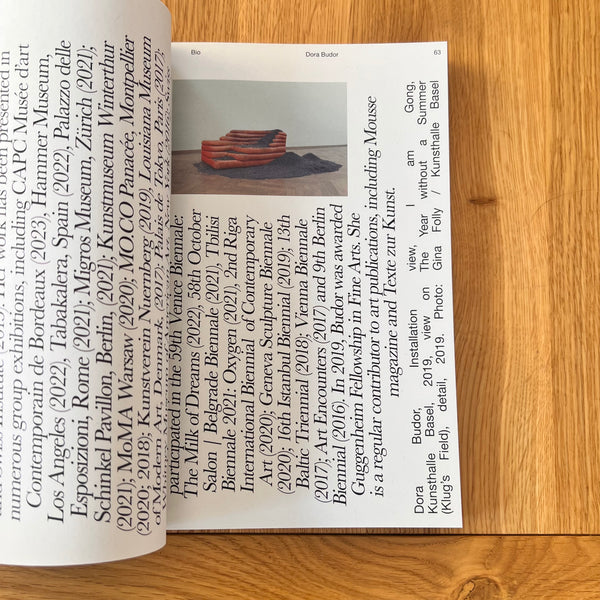 Bio
Dora Budor
63
numerous group exhibitions, including CAPC Musée d'art
Contemporain de Bordeaux (2023), Hammer Museum,
Los Angeles (2022), Tabakalera, Spain (2022), Palazzo delle
Esposizioni, Rome (2021); Migros Museum, Zürich (2021);
Schinkel Pavillon, Berlin, (2021); Kunstmuseum Winterthur
(2021); MoMA Warsaw (2020); MO.CO Panacée, Montpellier
(2020; 2018); Kunstverein Nuernberg (2019), Louisiana Museum
of Modern Art, Denmark, (2017); Palais de Tokyo, Paris (2017);
participated in the 59th Venice Biennale:
The Milk of Dreams (2022), 58th October
Salon | Belgrade Biennale (2021), Tbilisi
Biennale 2021: Oxygen (2021), 2nd Riga
International Biennial of Contemporary
Art (2020); Geneva Sculpture Biennale
(2020); 16th Istanbul Biennial (2019); 13th
Baltic Triennial (2018); Vienna Biennale
(2017); Art Encounters (2017) and 9th Berlin
Biennial (2016). In 2019, Budor was awarded
Guggenheim Fellowship in Fine Arts. She
is a regular contributor to art publications, including Mousse
magazine and Texte zur Kunst.
Dora Budor, Installation view, I am Gong,
Kunsthalle Basel, 2019, view on The Year without a Summer
(Klug's Field), detail, 2019. Photo: Gina Folly / Kunsthalle Basel